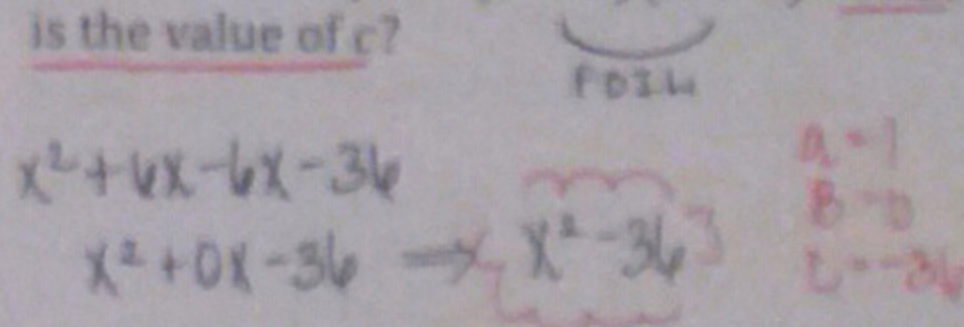 is the value of c?
FOIL
x² + 6x - 6x - 36
x² + 0x - 36 → x² - 36
a = 1
B = 0
C = -36